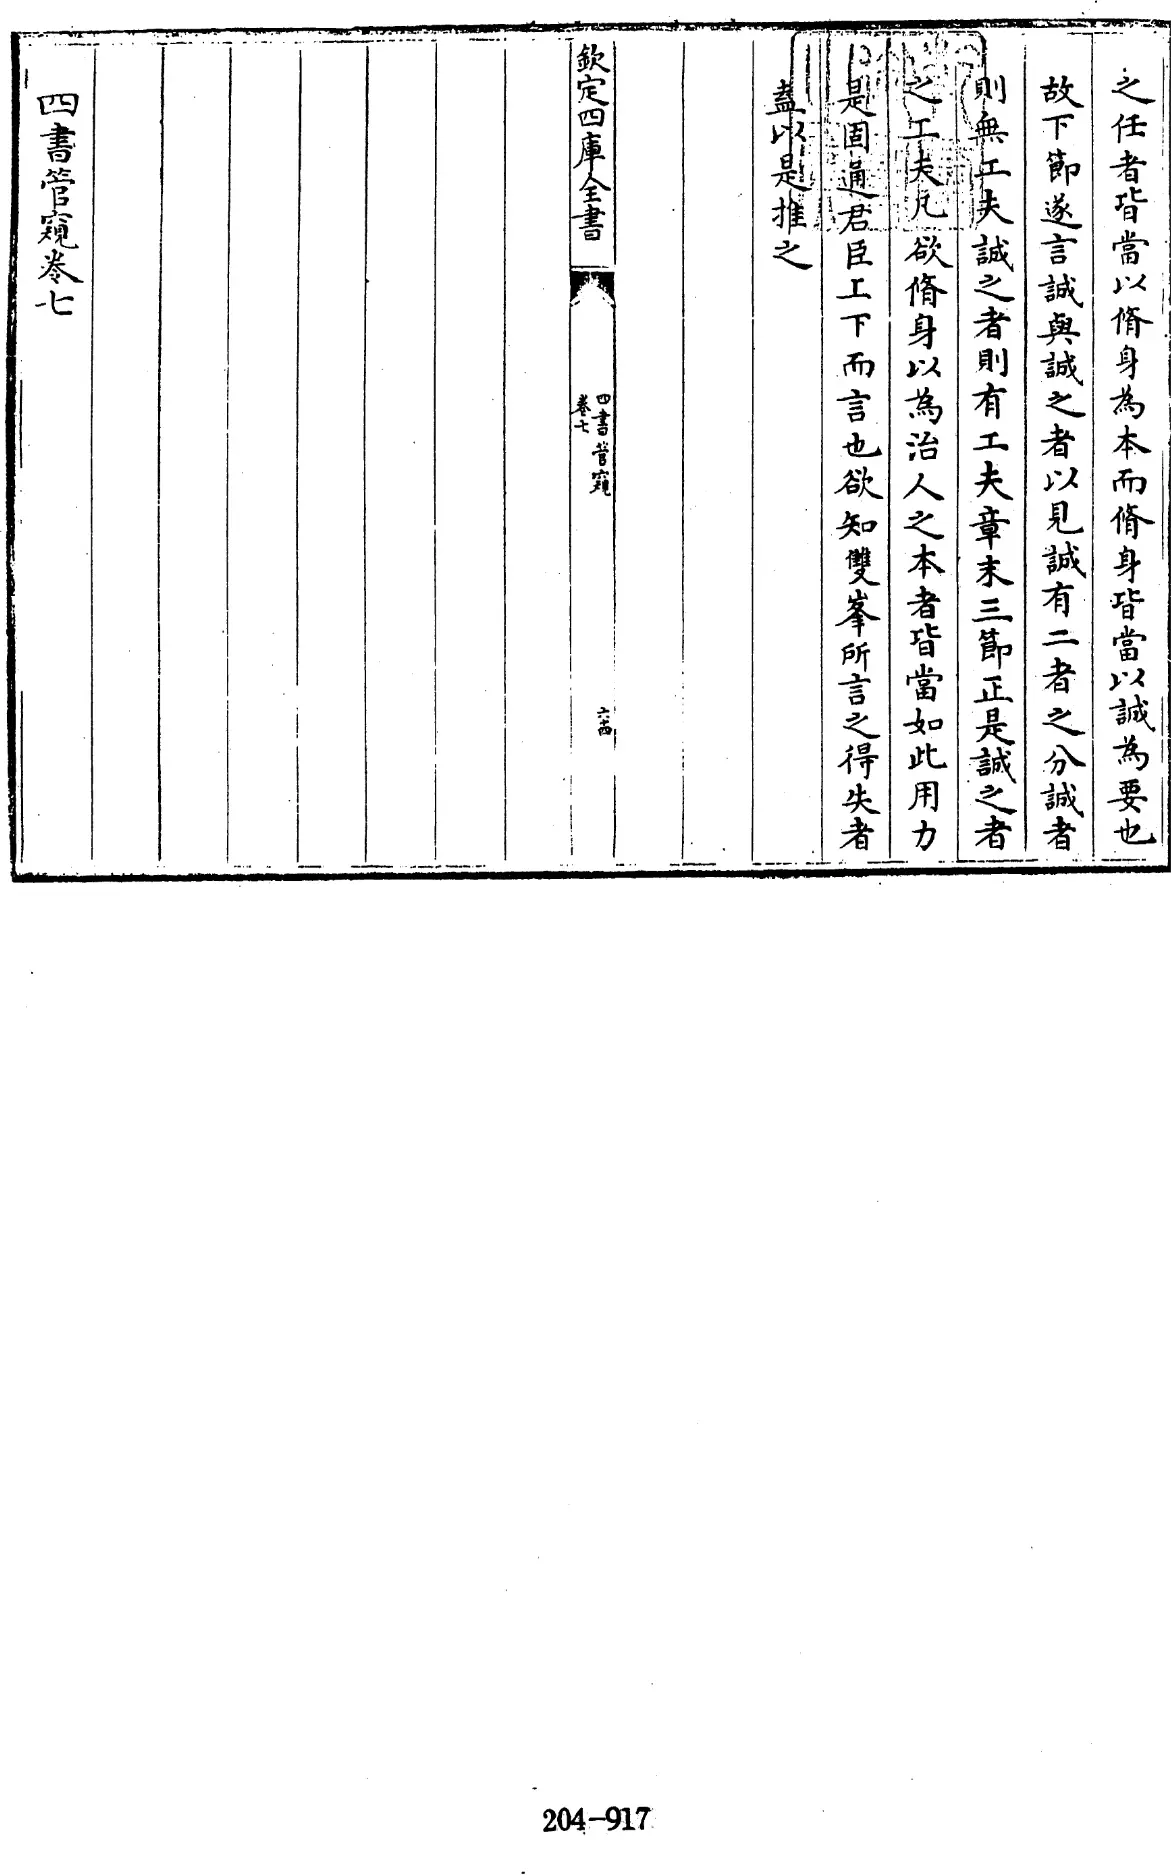 之任者皆當以脩身為本而脩身皆當以誠為要也
故下節遂言誠與誠之者以見誠有二者之分誠者
則無工夫誠之者則有工夫章末三節正是誠之者
之工夫凡欲脩身以為治人之本者皆當如此用力
是固通君臣工下而言也欲知雙峯所言之得失者
盍以是推之
欽定四庫全書
四書管窺
卷七
六十四
四書管窺卷七
204-917